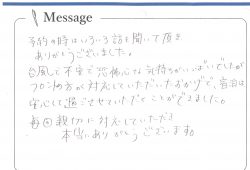 Message
予約の時はいろいろ話を聞いて頂き
ありがとうございました。
台風で不安で恐怖心な気持ちがいっぱいでしたが
フロントの方が対応していただいたおかげで、宿泊は
安心して過ごさせていただくことができました。
毎回親切に対応していただき
本当にありがとうございます。